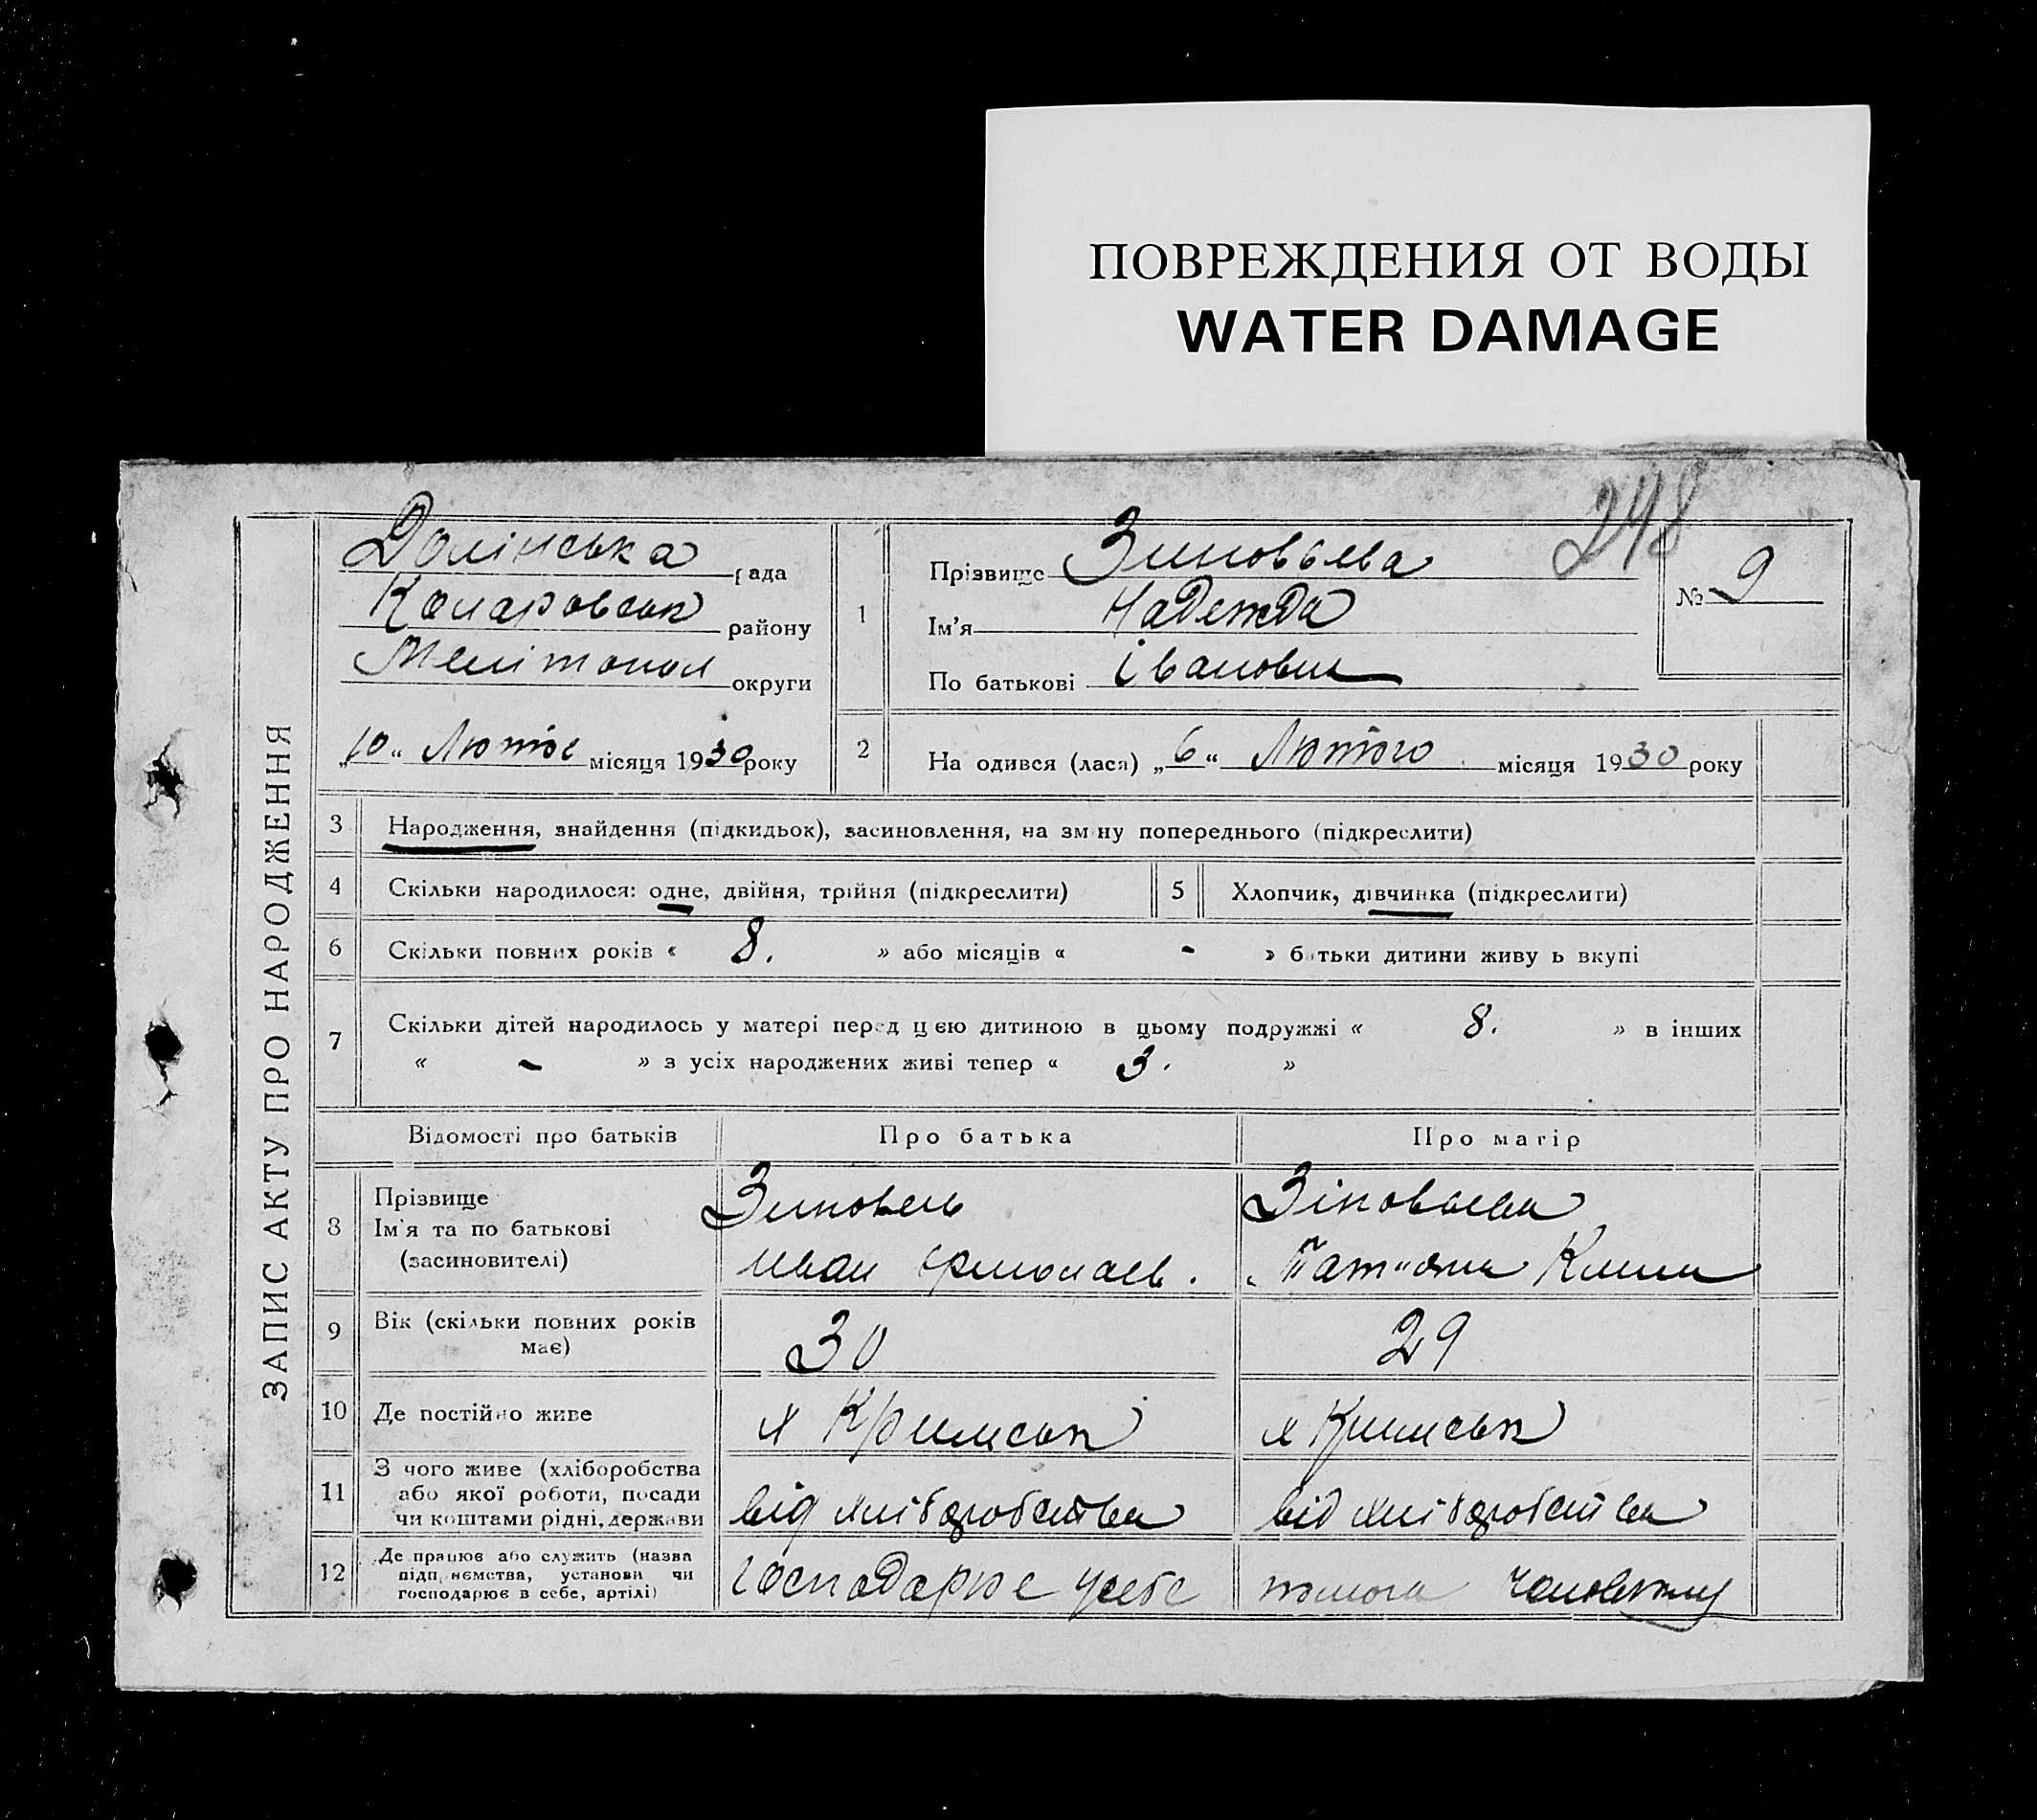 ПОВРЕЖДЕНИЯ ОТ ВОДЫ
WATER DAMAGE
248
ЗАПИС АКТУ ПРО НАРОДЖЕННЯ
Долінська рада
району
Мелітопол округи
„10“ місяця 1930 року
1
Прізвище Зиновьева
Ім'я Надежда
По батькові Івановна
№ 9
2
На одився (лася) „6“ Лютого місяця 1930 року
3 Народження, знайдення (підкидьок), засиновлення, на зміну попереднього (підкреслити)
4 Скільки народилося: одне, двійня, трійня (підкреслити)
5 Хлопчик, дівчинка (підкреслити)
6 Скільки повних років « 8. » або місяців « - » батьки дитини живу ь вкупі
7 Скільки дітей народилось у матері перед цею дитиною в цьому подружжі « 8. » в інших
« - » з усіх народжених живі тепер « 3. »
Відомості про батьків Про батька Про матір
8
Прізвище
Ім'я та по батькові
(засиновителі)
Зиновьев
Иван Ермолаев.
Зіновьева
Татияна Клим
9 Вік (скільки повних років
має)
30 29
10 Де постійно живе
х Кримськ х Кримськ
11
З чого живе (хліборобства
або якої роботи, посади
чи коштами рідні, держави
від хліборобства від хліборобства
12
Де працює або служить (назва
підп, ємства, установи чи
господарює в себе, артілі)
господарює у себе помога человеку